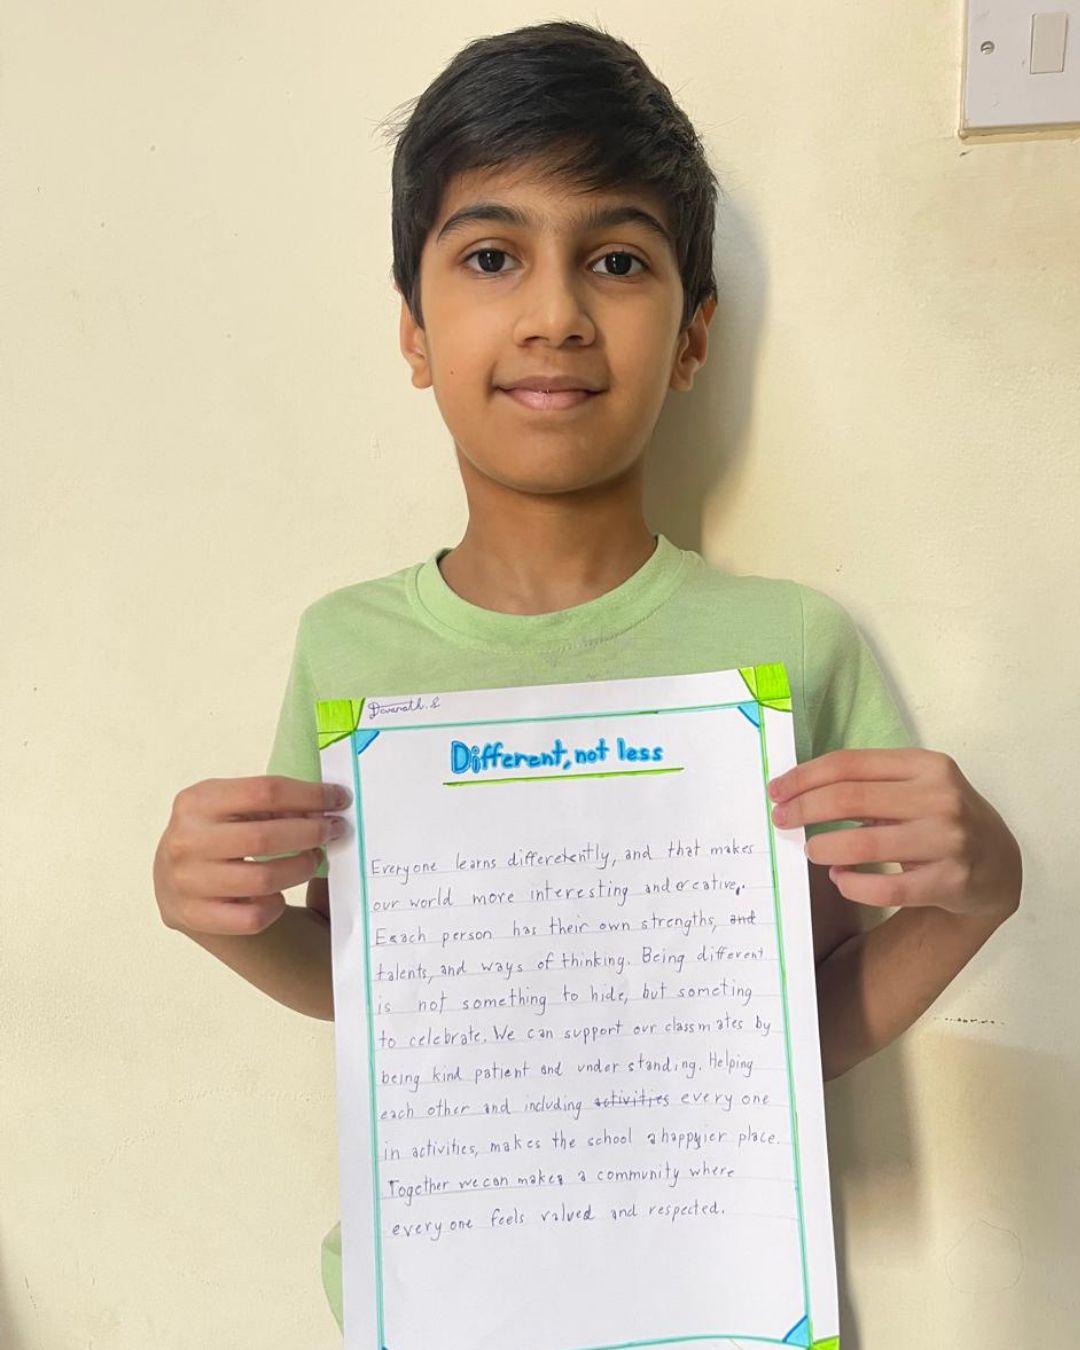 Devanath. S
Different, not less
Everyone learns differetently, and that makes
our world more interesting and creative,.
Each person has their own strengths, and
talents, and ways of thinking. Being different
is not something to hide, but someting
to celebrate. We can support our classmates by
being kind patient and understanding. Helping
each other and including activities everyone
in activities, makes the school a happyier place.
Together we can makes a community where
everyone feels valued and respected.